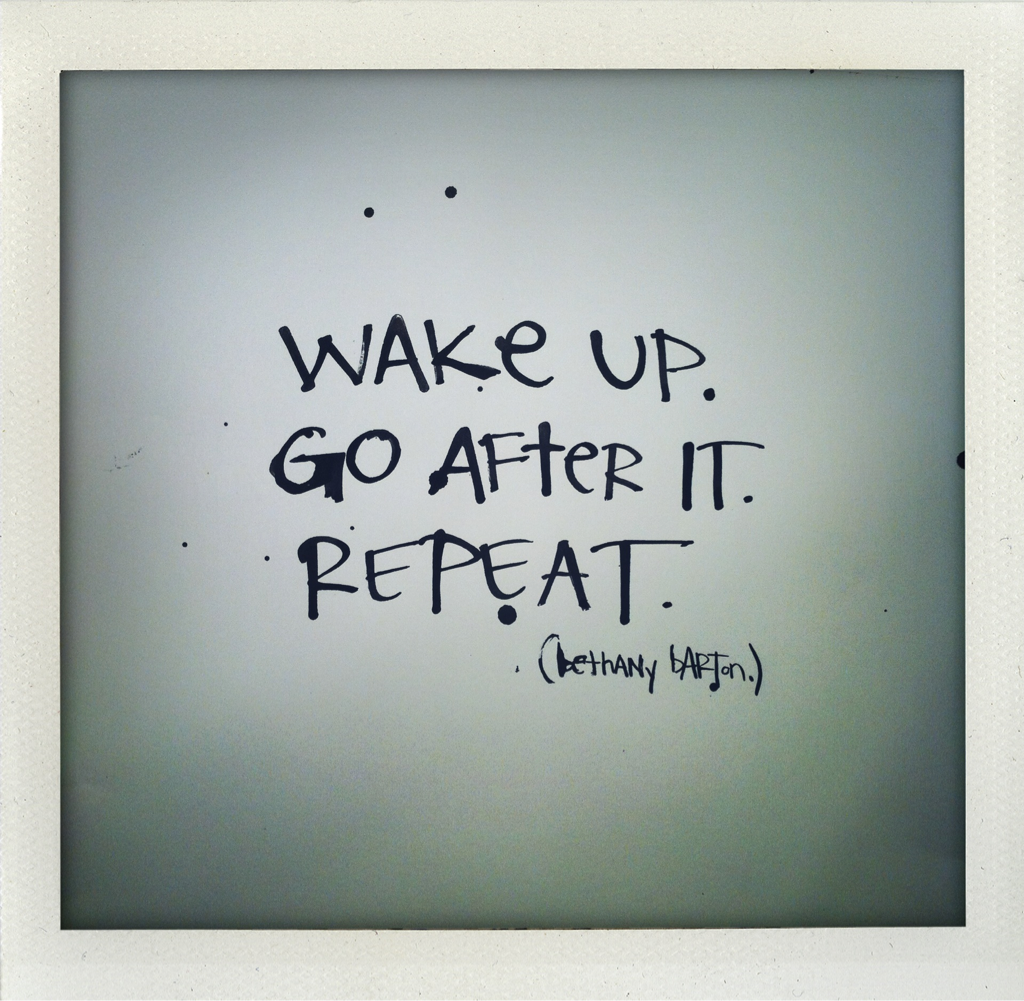 WAKe UP.
GO AFteR IT.
REPEAT.
(bethANy bARTon.)